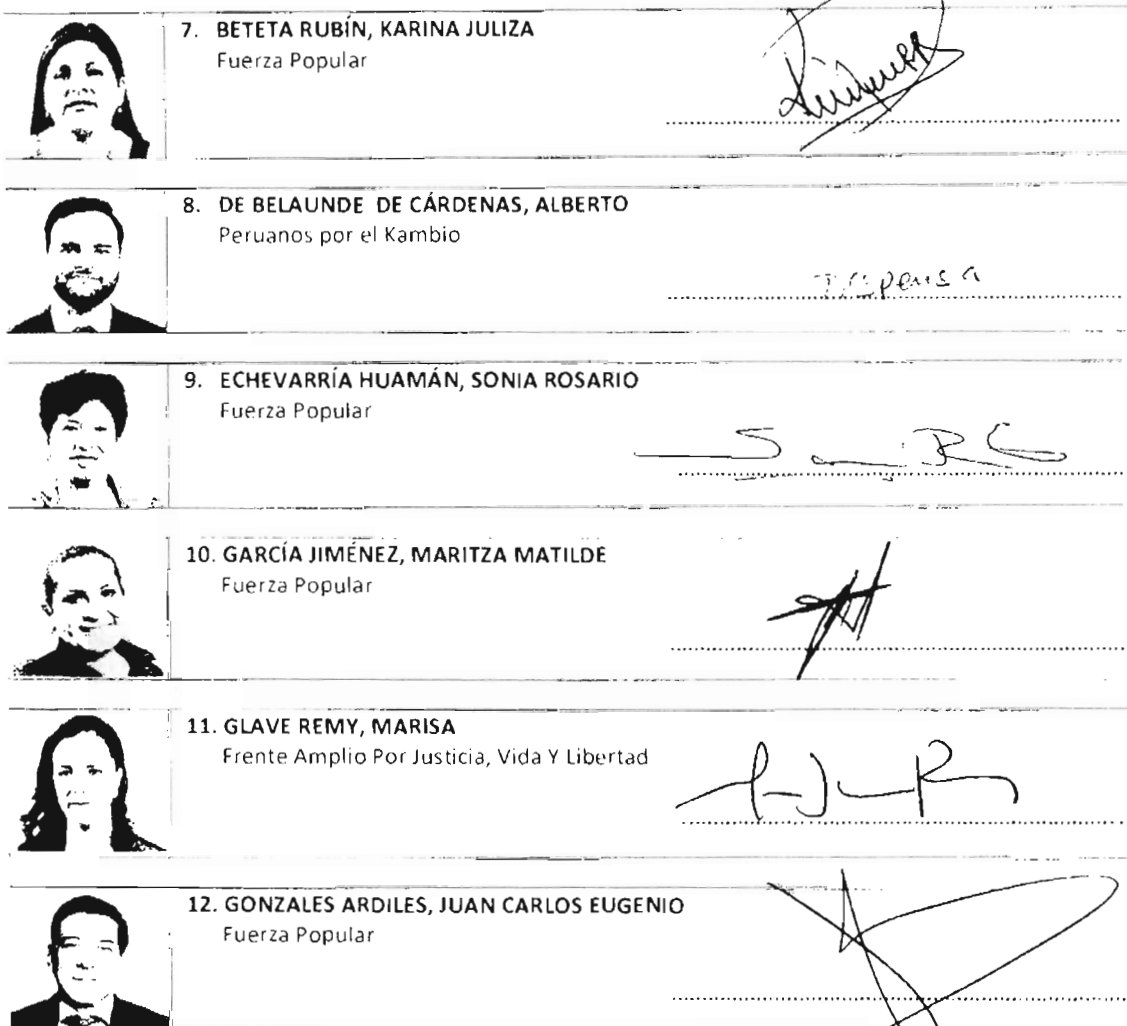 7. BETETA RUBÍN, KARINA JULIZA
Fuerza Popular
8. DE BELAUNDE DE CÁRDENAS, ALBERTO
Peruanos por el Kambio
9. ECHEVARRÍA HUAMÁN, SONIA ROSARIO
Fuerza Popular
10. GARCÍA JIMÉNEZ, MARITZA MATILDE
Fuerza Popular
11. GLAVE REMY, MARISA
Frente Amplio Por Justicia, Vida Y Libertad
12. GONZALES ARDILES, JUAN CARLOS EUGENIO
Fuerza Popular